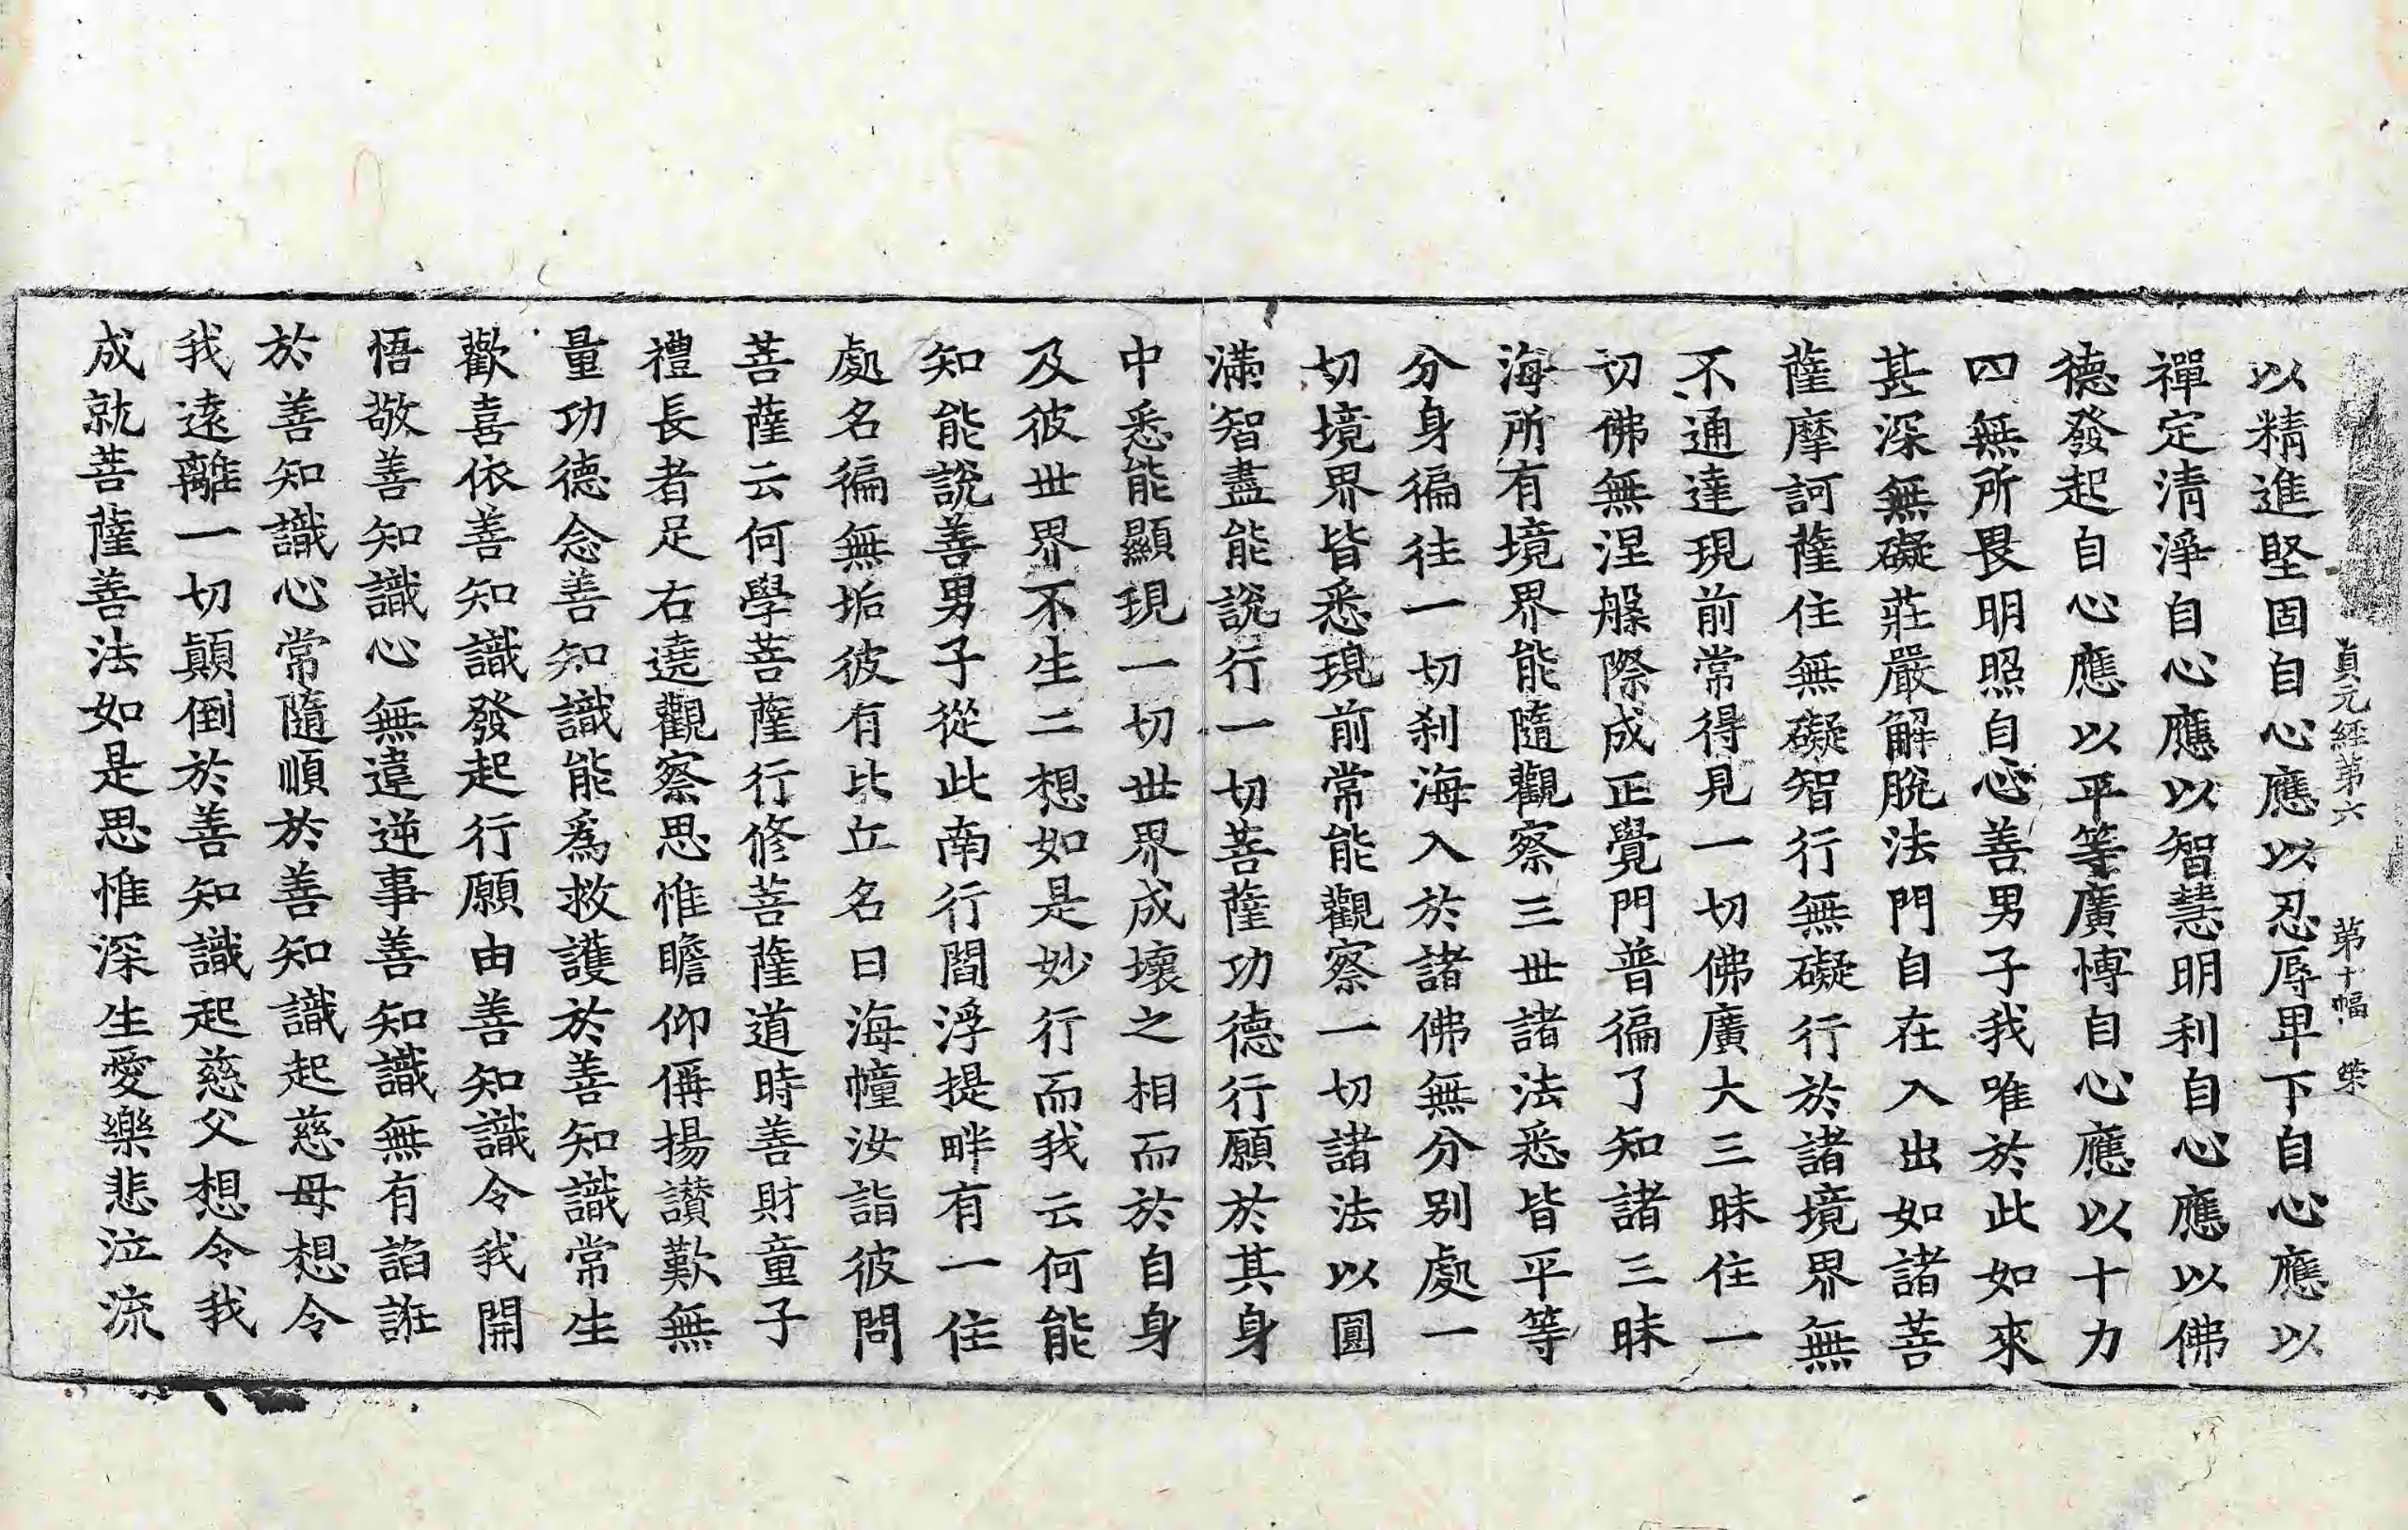 貞元經第六 第十幅 荣
以精進堅固自心應以忍辱卑下自心應以
禪定清淨自心應以智慧明利自心應以佛
德發起自心應以平等廣博自心應以十力
四無所畏明照自心善男子我唯於此如來
甚深無礙莊嚴解脫法門自在入出如諸菩
薩摩訶薩住無礙智行無礙行於諸境界無
不通達現前常得見一切佛廣大三昧住一
切佛無涅槃際成正覺門普徧了知諸三昧
海所有境界能隨觀察三世諸法悉皆平等
分身徧往一切刹海入於諸佛無分別處一
切境界皆悉現前常能觀察一切諸法以圓
滿智盡能說行一切菩薩功德行願於其身
中悉能顯現一切世界成壞之相而於自身
及彼世界不生二想如是妙行而我云何能
知能說善男子從此南行閻浮提畔有一住
處名徧無垢彼有比丘名曰海幢汝詣彼問
菩薩云何學菩薩行修菩薩道時善財童子
禮長者足右遶觀察思惟瞻仰偁揚讃歎無
量功德念善知識能爲救護於善知識常生
歡喜依善知識發起行願由善知識令我開
悟敬善知識心無違逆事善知識無有諂誑
於善知識心常隨順於善知識起慈母想令
我遠離一切顛倒於善知識起慈父想令我
成就菩薩善法如是思惟深生愛樂悲泣流